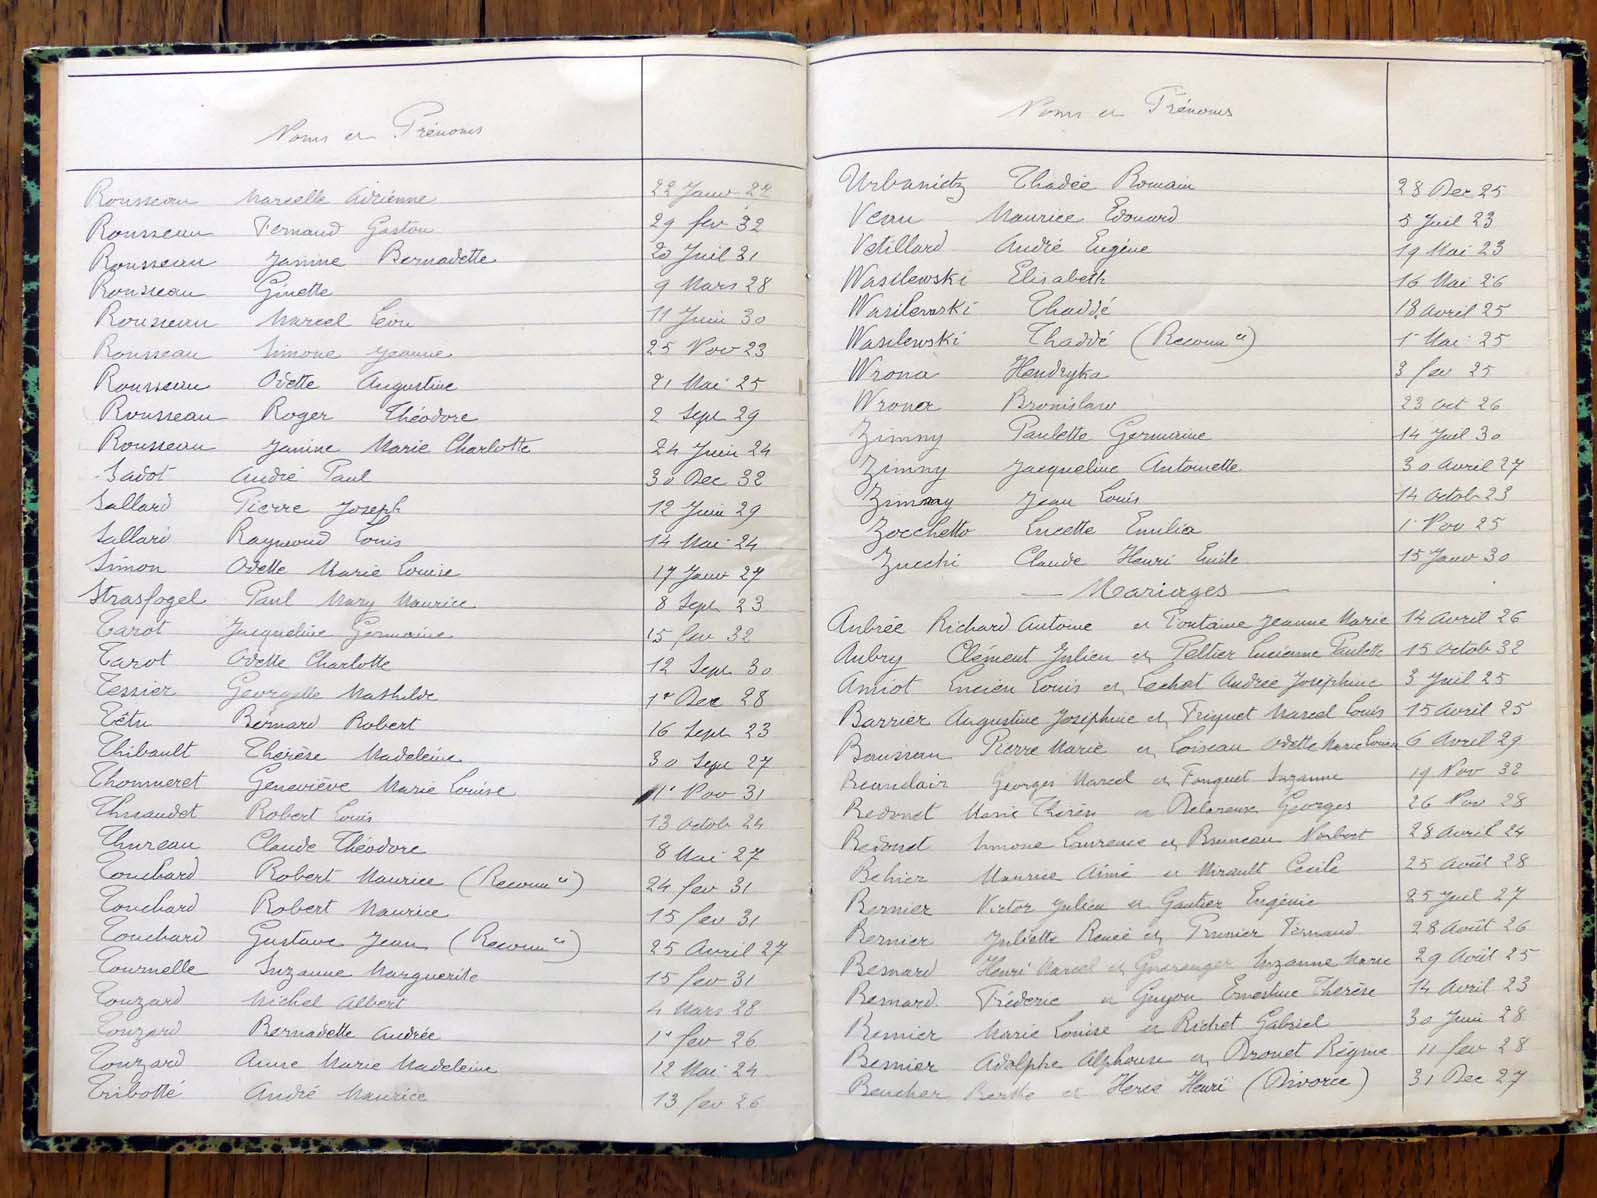 Noms et Prénoms
Rousseau Marcelle Adrienne 22 Janv 27
Rousseau Fernand Gaston 29 fev 32
Rousseau Janine Bernadette 20 Juil 31
Rousseau Ginette 9 Mars 28
Rousseau Marcel Léon 11 Juin 30
Rousseau Simone Jeanne 25 Nov 23
Rousseau Odette Augustine 21 Mai 25
Rousseau Roger Théodore 2 Sept 29
Rousseau Janine Marie Charlotte 24 Juin 24
Sadot André Paul 30 Dec 32
Sallard Pierre Joseph 12 Juin 29
Sallard Raymond Louis 14 Mai 24
Simon Odette Marie Louise 17 Janv 27
Strasfogel Paul Mary Maurice 8 Sept 23
Tarot Jacqueline Germaine 15 fev 32
Tarot Odette Charlotte 12 Sept 30
Tessier Georgette Mathilde 1er Dec 28
Têtu Bernard Robert 16 Sept 23
Thibault Thérèse Madeleine 30 Sept 27
Thommeret Geneviève Marie Louise 1r Nov 31
Thuaudet Robert Louis 13 octob 24
Thureau Claude Théodore 8 Mai 27
Touchard Robert Maurice (Reconn ce) 24 fev 31
Touchard Robert Maurice 15 fev 31
Touchard Gustave Jean (Reconn ce) 25 Avril 27
Tournelle Suzanne Marguerite 15 fev 31
Touzard Michel Albert 4 Mars 28
Touzard Bernadette Andrée 1r fev 26
Touzard Anne Marie Madeleine 12 Mai 24
Tribotté André Maurice 13 fev 26
Noms et Prénoms
Urbanictz Thadée Romain 28 Dec 25
Veau Maurice Edouard 5 Juil 23
Vétillard André Eugène 19 Mai 23
Wasilewski Elisabeth 16 Mai 26
Wasilewski Thaddé 18 avril 25
Wasilewski Thaddé (Reconn ce) 1r Mai 25
Wrona Hendryka 3 fev 25
Wrona Bronislaw 23 oct 26
Zimny Paulette Germaine 14 Juil 30
Zimny Jacqueline Antoinette 30 avril 27
Zimny Jean Louis 14 octob 23
Zocchetto Lucette Emilia 1r Nov 25
Zucchi Claude Henri Emile 15 Janv 30
— Mariages —
Aubrée Richard Antoine et Fontaine Jeanne Marie 14 avril 26
Aubry Clément Julien et Peltier Lucienne Paulette 15 octob 32
Amiot Lucien Louis et Lechat Andrée Josephine 3 Juil 25
Barrier Augustine Joséphine et Friquet Marcel Louis 15 Avril 25
Bausseau Pierre Marie et Loiseau Odette Marie Louise 6 Avril 29
Beauclair Georges Marcel et Fouquet Suzanne 19 Nov 32
Bedouet Marie Thérèse et Delareux Georges 26 Nov 28
Bedouet Simone Laurence et Bruneau Norbert 28 avril 24
Behier Maurice Aimé et Mirault Cecile 25 Août 28
Bernier Victor Julien et Gautier Eugénie 25 Juil 27
Bernier Juliette Renée et Prunier Fernand 28 Août 26
Besnard Henri Marcel et Gueranger Suzanne Marie 29 Août 25
Besnard Fréderic et Guyon Ernestine Therèse 14 Avril 23
Besnier Marie Louise et Richet Gabriel 30 Juin 28
Besnier Adolphe Alphonse et Drouet Régine 11 fev 28
Beucher Berthe et Hervé Henri (Divorce) 31 Dec 27